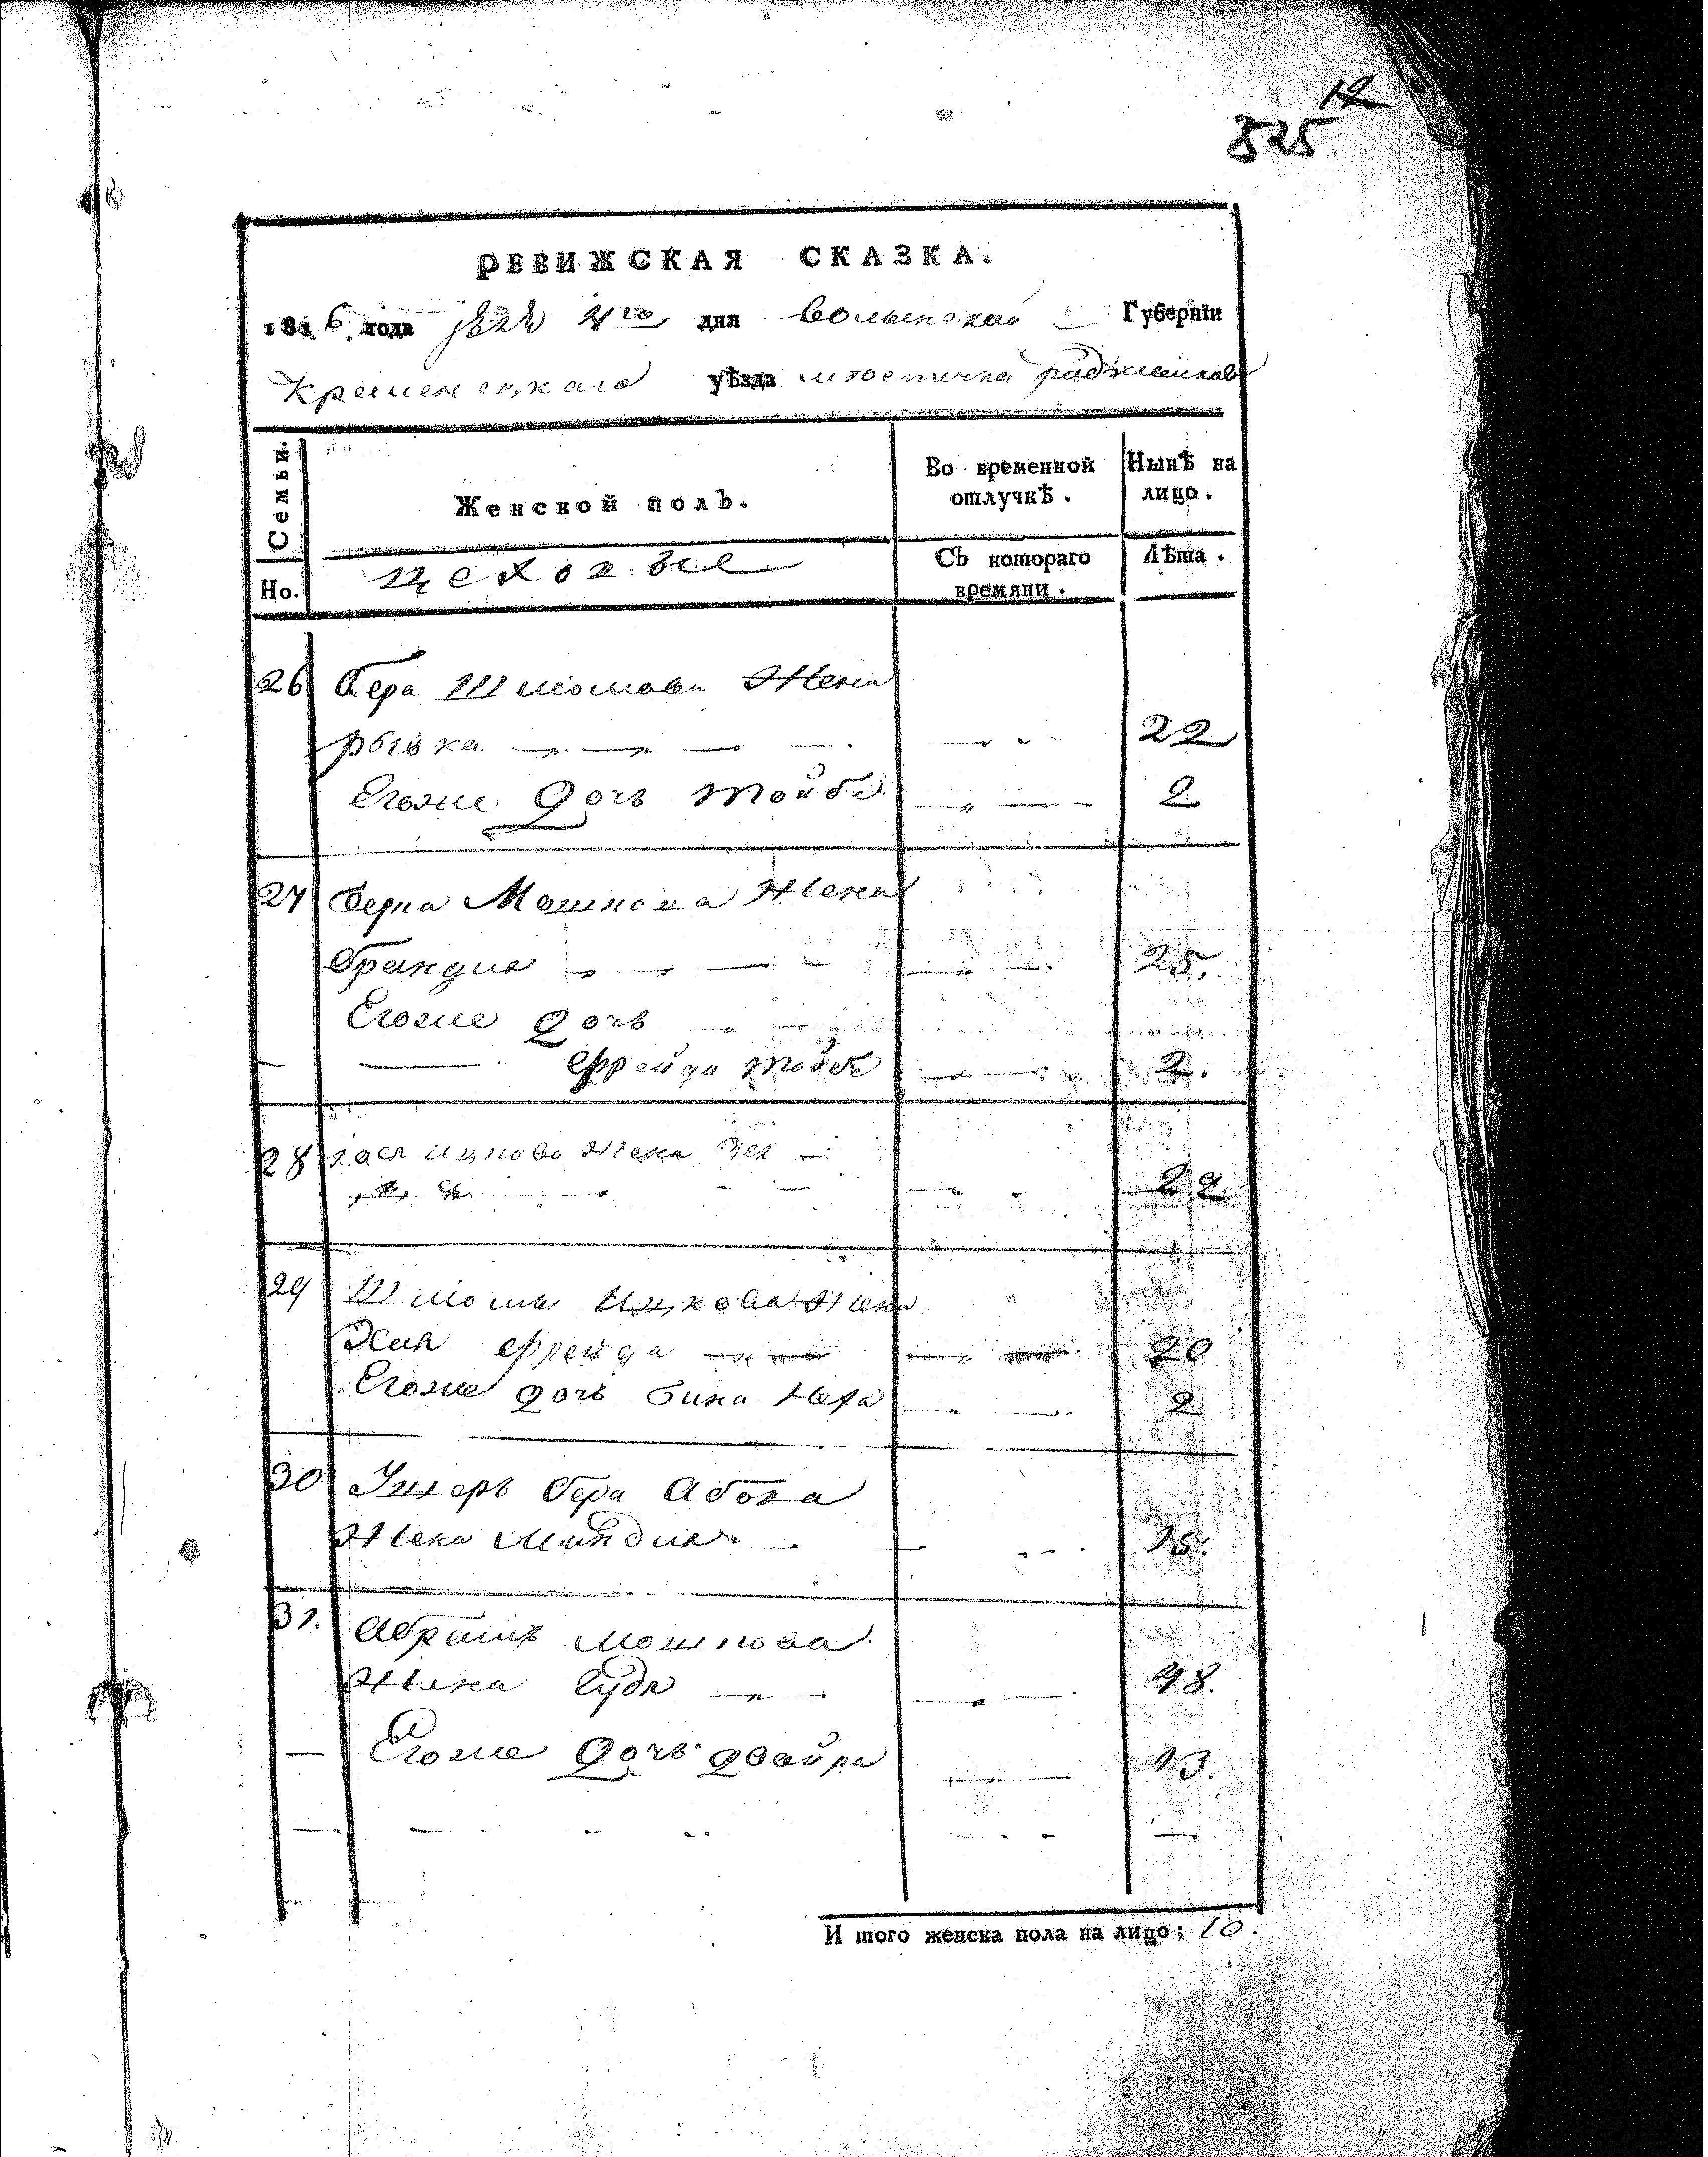 12
525
РЕВИЖСКАЯ СКАЗКА.
1816 года 4го дня Волынской Губернїи
Кременецкаго уѣзда мѣстечка
Семьи.
Женской полъ.
Во временной отлучкѣ.
Нынѣ на лицо.
Но.
цеховые
Съ котораго времяни.
Лѣта.
26 Бера Шлиомова Жена
рывка 22
Егоже Дочь Тойба 2
27 Берка Мошкова Жена
Брандля 25.
Егоже Дочь
Фрейда Тойба 2.
28 Ицкова Жена 22
29 Шлиомы Ицкова Жена
Хая Фрейда 20
Егоже дочь Бина Неха 2
30 Ушеръ Бера Абова
Жена Миндля 15.
31. Абрамъ Мошкова
Жена Судя 48.
Егоже Дочь Двойра 13.
И того женска пола на лицо: 10.